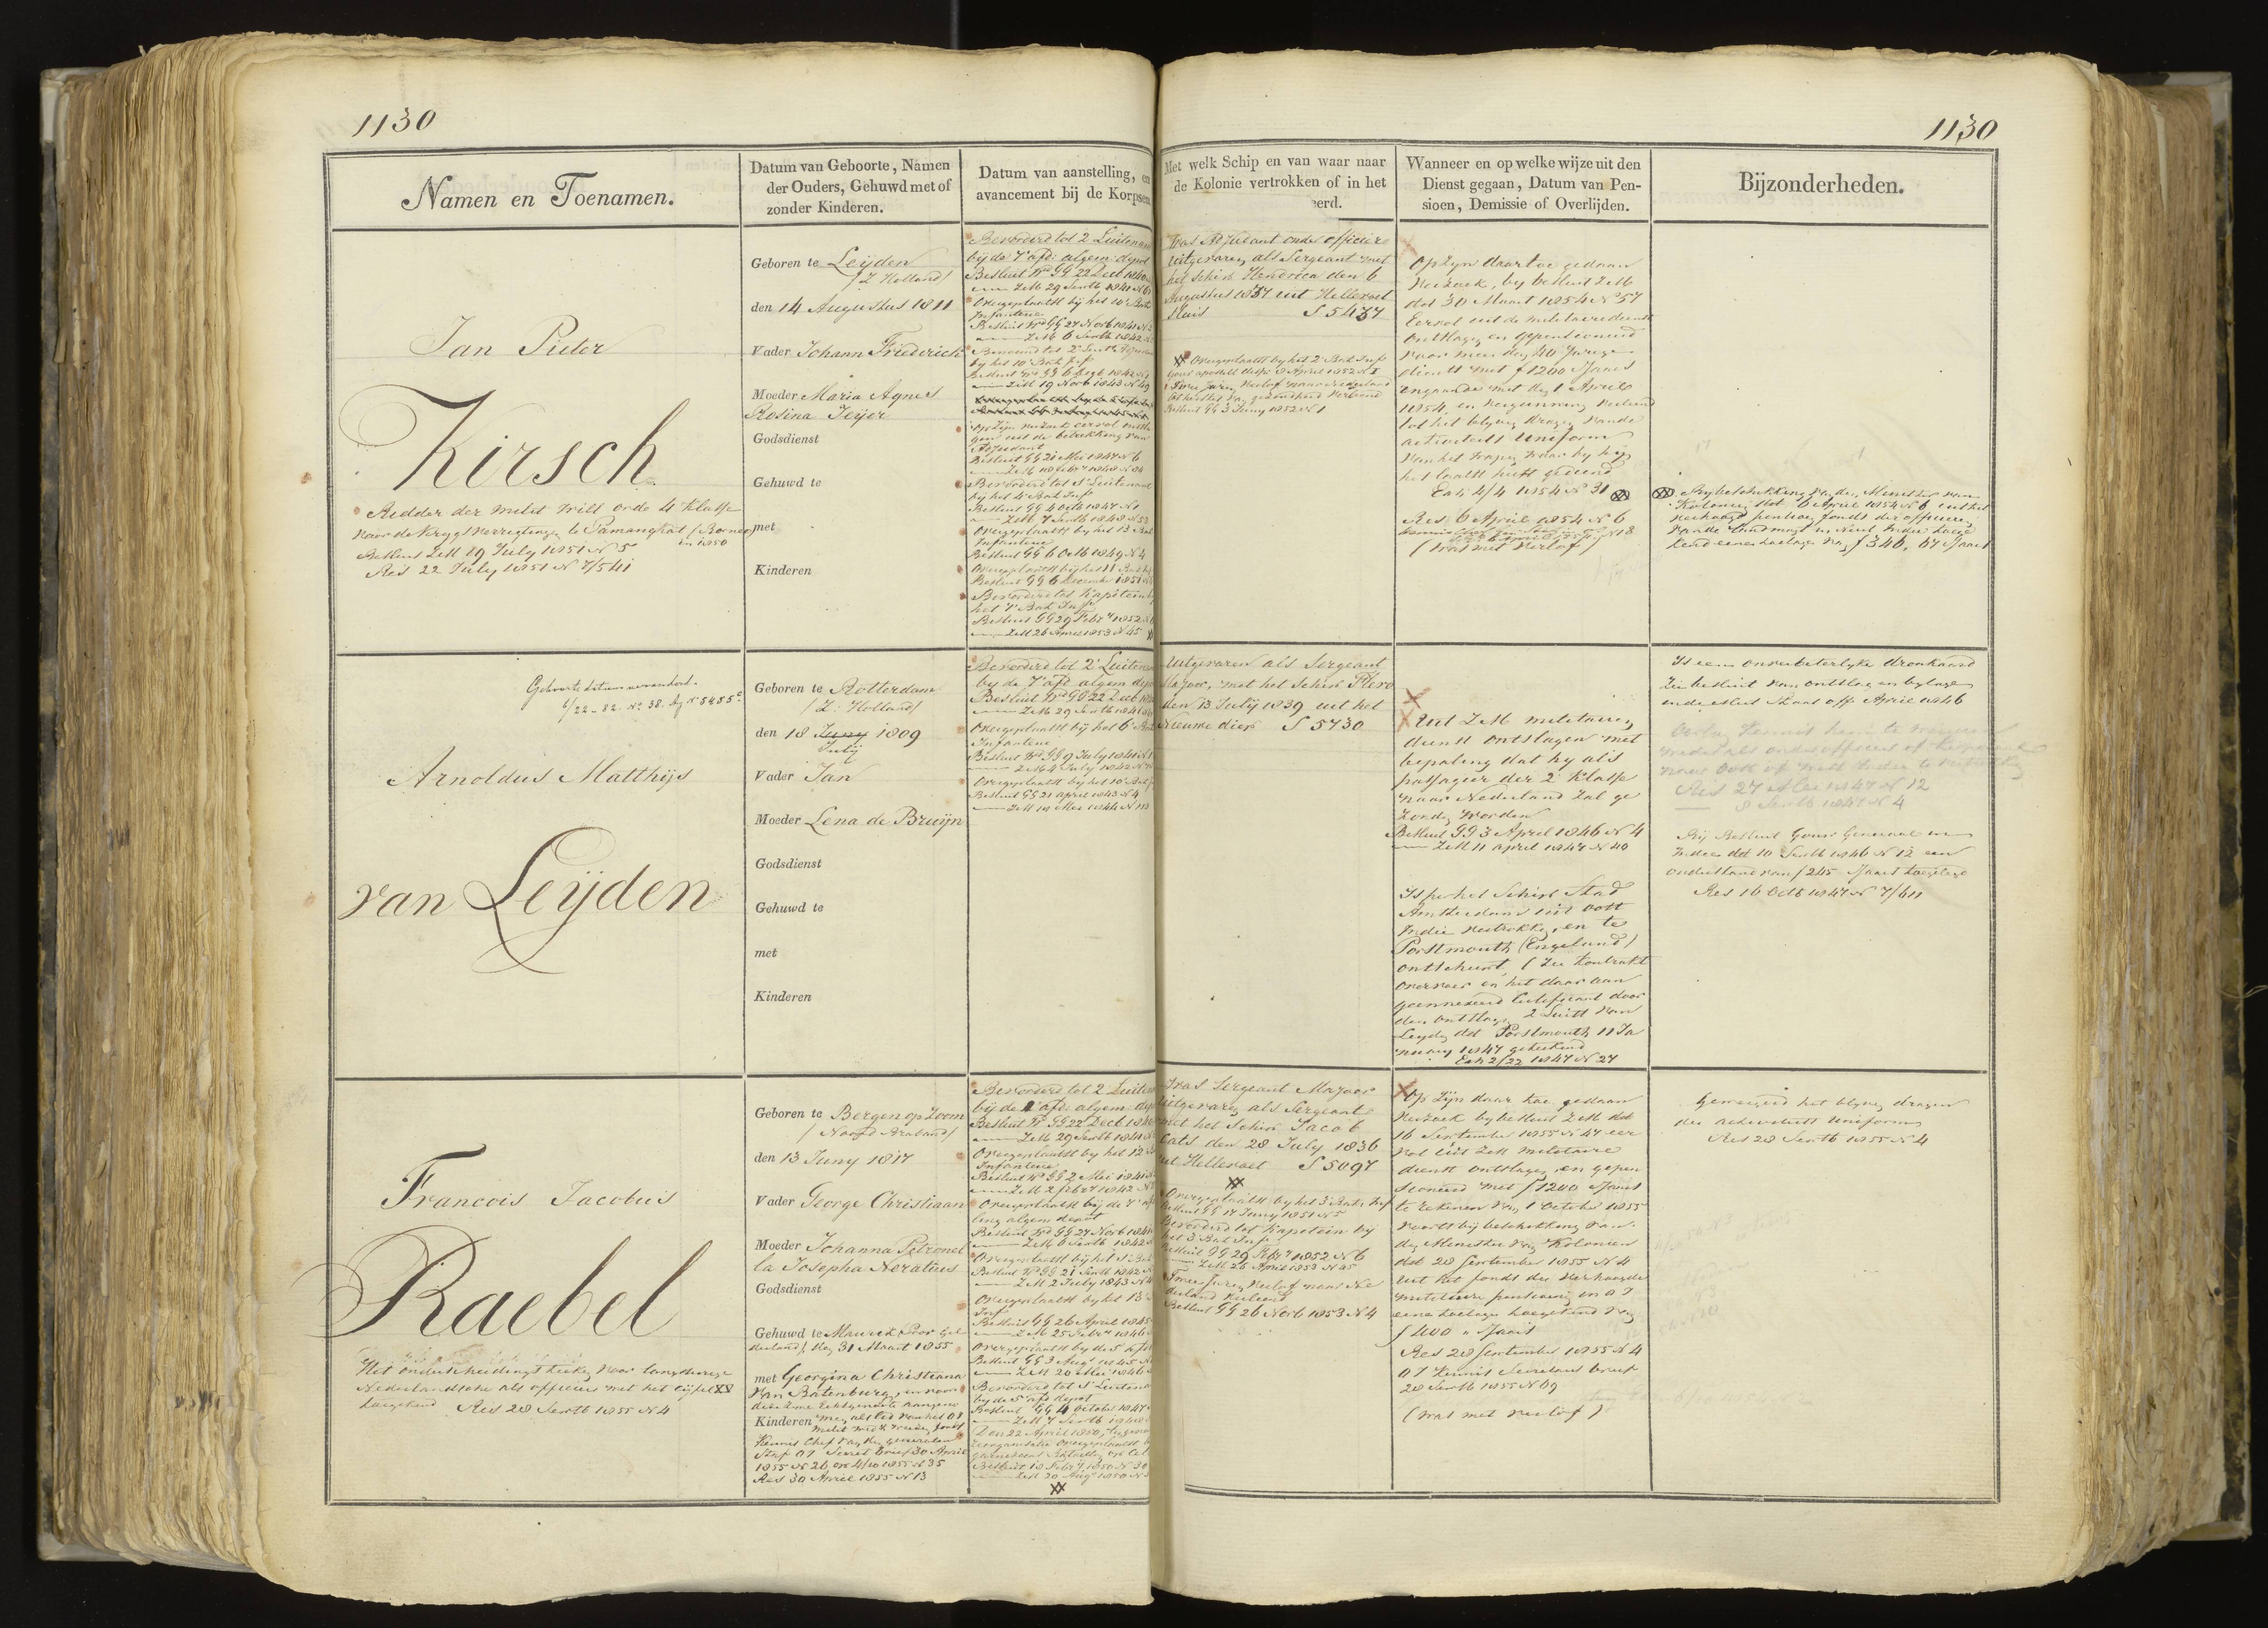 1130
1130
Namen en Toenamen.
Datum van Geboorte, Namen
der Ouders, Gehuwd met of
zonder Kinderen.
Datum van aanstelling, en
avancement bij de Korpsen
Met welk Schip en van waar naar
de Kolonie vertrokken of in het
eerd.
Wanneer en op welke wijze uit den
Dienst gegaan, Datum van Pen-
sioen, Demissie of Overlijden.
Bijzonderheden.
Jan Pieter
Kirsch
Ridder der Milit Will orde 4 Klasse
voor de Krygsverrigtingen te Pamangkat (Borneo)
in 1850
Besluit ZM 19 July 1851 N 5
Res 22 July 1851 N 7/541
Geboren te Leijden
/Z Holland/
den 14 Augustus 1811
Vader Johann Friederick
Moeder Maria Agnes
Rosina Jeyer
Godsdienst
Gehuwd te
met
Kinderen
Bevorderd tot 2 Luitenant
bij de 7 afd: algem: depot
Besluit Wd GG 22 Decb 1840
ZM 29 Septb 1841
Overgeplaatst bij het 10 Bat
Infanterie
Besluit Wd GG 27 Novb 1841 N 2
ZM 6 Septb 1842
by het 10 Bat Inf
ZM 19 Novb 1843 N 49
Op zijn verzoek eervol ontsla
gen uit de betrekking van
Adjudant
Besluit GG 21 Mei 1847 N 6
Bevorderd tot 1 Luitenant
bij het 4 Bat Inf
Besluit GG 4 Octb 1847 N 1
ZM 7 Septb 1848 N 53
Overgeplaatst bij het 13 Bat
Infanterie
Besluit GG 6 Octb 1849 N 4
Overgeplaatst bij het 11 Bat Inf
Besluit GG 6 December 1851
Bevorderd tot Kapitein bij
het 7 Bat Inf
Besluit GG 29 Febr 1852
ZM 26 April 1853 N 45
Was Adjudant onder officier
uitgevaren als Sergeant met
het schip Hendrica den 6
Augustus 1837 uit Hellevoet
sluis S 5437
XX Overgeplaatst by het 2 Bat Inf
Twee Jaren verlof naar Nederland
tot herstel van gezondheid verleend
Besluit GG 3 Juny 1852 N 1
Op zyn daartoe gedaan
Verzoek, by besluit ZM
dat 30 Maart 1854 N 57
Eervol uit de militaire dienst
ontslagen en gepensioneerd
voor meer dan 40 Jarige
dienst met f 1200 Jaars
ingaande met den 1 April
1854, en vergunning verleend
tot het blyven dragen van de
activiteits Uniform
van het wapen waar by hy
het laatst heeft gediend
Exh 4/4 1854 N 31
Res 6 April 1854 N 6
(was met verlof)
By beschikking van den Minister van
Kolonien dat 6 April 1854 N 6 uit het
verhoogd pensioen fonds der officieren
van de landmagt in Ned Indie toege
kend eene toelage van f 346,67 Jaars
Geboorte datum veranderd.
6/22-82. No 38. Ag No 5485c
Arnoldus Matthijs
van Leijden
Geboren te Rotterdam
/Z: Holland/
den 18 Juny 1809
July
Vader Jan
Moeder Lena de Bruijn
Godsdienst
Gehuwd te
met
Kinderen
Bevorderd tot 2 Luiten
by de 7 afd algem depot
Besluit Wd GG 22 Decb
ZM 29 Septb 1841
Overgeplaatst bij het 6 Bat
Infanterie
Besluit Wd GG 9 July 1841 N 1
ZM 2 July 1842
Overgeplaatst bij het 10 Bat
Besluit GG 21 April 1843 N 4
ZM 14 Mei 1844 N 113
Uitgevaren als Sergeant
Majoor, met het Schip Hero
den 13 July 1839 uit het
Nieuwe diep S 5730
Uit ZM militaire
dienst ontslagen met
bepaling dat hy als
passagier der 2 Klasse
naar Nederland zal ge
zonden worden
Besluit GG 3 April 1846 N 4
ZM 11 April 1847 N 40
Is per het Schip Stad
Amsterdam uit oost
Indie vertrokken, en te
Portsmouth (Engeland)
ontscheept, (zie Contrakt
overvoer en het daar aan
geannexeerd Certificaat door
den ontslagen 2 Luitt van
Leyden dat Portsmouth 11 Ja
nuary 1847 geteekend
Exh 2/22 1847 N 27
Is een onverbeterlyke dronkaard
Zie besluit van ontslag en bylagen
Res 27 Mei 1847 N 12
8 Septb 1847 N 4
By Besluit Gouvr Generaal in
Indie dat 10 Septb 1846 N 12 een
onderstand van f 245 Jaars toegelegd
Res 16 Octb 1847 N 7/611
Francois Jacobus
Raebel
Het onderscheidings teeken voor langdurige
Nederlandsche als officier met het cijfer XV
toegekend Res 28 Septb 1855 N 4
Geboren te Bergen op Zoom
/Noord Braband/
den 13 Juny 1817
Vader George Christiaan
Moeder Johanna Petronel
la Josepha Neratius
Godsdienst
Gehuwd te Maurik (Prov Gel
derland) den 31 Maart 1855
met Georgina Christiana
van Batenburg, en voor
deze zyne Echtgenoote aangeno
Kinderen men, als lid van het O I
Milit Wed & Weezen fonds
Kennis Chef van den generalen
Staf O I Secret brief 30 April
1855 N 26 exh 4/10 1855 N 35
Res 30 April 1855 N 13
Bevorderd tot 2 Luiten
bij de 1 afd: algem: depot
Besluit Wd GG 22 Decb 1840
ZM 29 Septb 1841
Overgeplaatst by het 12
Infanterie
Besluit Wd GG 2 Mei 1841
ZM 2 Febr 1842
Overgeplaatst bij de 7 afd
ling algem depot
Besluit Wd GG 27 Novb 1841
ZM 6 Septb 1842
Overgeplaatst bij het 1 Bat
Besluit Wd GG 21 Septb 1842
ZM 2 July 1843
Overgeplaatst by het 13
Inf
Besluit GG 26 April 1845
ZM 25 Febr 1846
Overgeplaatst by de 5 afd
Besluit GG 3 Aug 1845
ZM 20 Mei 1846
Bevorderd tot 1 Luitena
by de 5 afd depot
Besluit GG 4 October 1847
ZM 7 Septb 1848
Den 22 April 1850, by gen
reorganisatie overgeplaatst
Besluit 18 Febr 1850 N 30
ZM 20 Aug 1850
XX
Was Sergeant Majoor
uitgevaren als Sergeant
met het Schip Jacob
Cats den 28 July 1836
uit Hellevoet S 5097
XX
Overgeplaatst by het 3 Bat: Inf
Besluit GG 17 Juny 1851 N 5
Bevorderd tot Kapitein by
het 3 Bat Inf
Besluit GG 29 Febr 1852 N 6
ZM 26 April 1853 N 45
Twee Jaren verlof naar Ne
derland verleend
Besluit GG 26 Novb 1853 N 4
Op Zijn daar toe gedaan
Verzoek by besluit ZM dat
16 September 1855 N 47 eer
vol uit ZM militaire
dienst ontslagen en gepen
sioneerd met f 1200 Jaars
te rekenen van 1 October 1855
voorts bij beschikking van
den Minister van Kolonien
dat 28 September 1855 N 4
uit het fonds der verhoogde
militaire pensioenen in O I
eene toelage toegekend van
f 400 „ Jaars
Res 28 September 1855 N 4
O I Kennis Secretaris brief
28 Septb 1855 N 69
(was met verlof)
Geweigerd het blyven dragen
der activiteits uniform
Res 28 Septb 1855 N 4